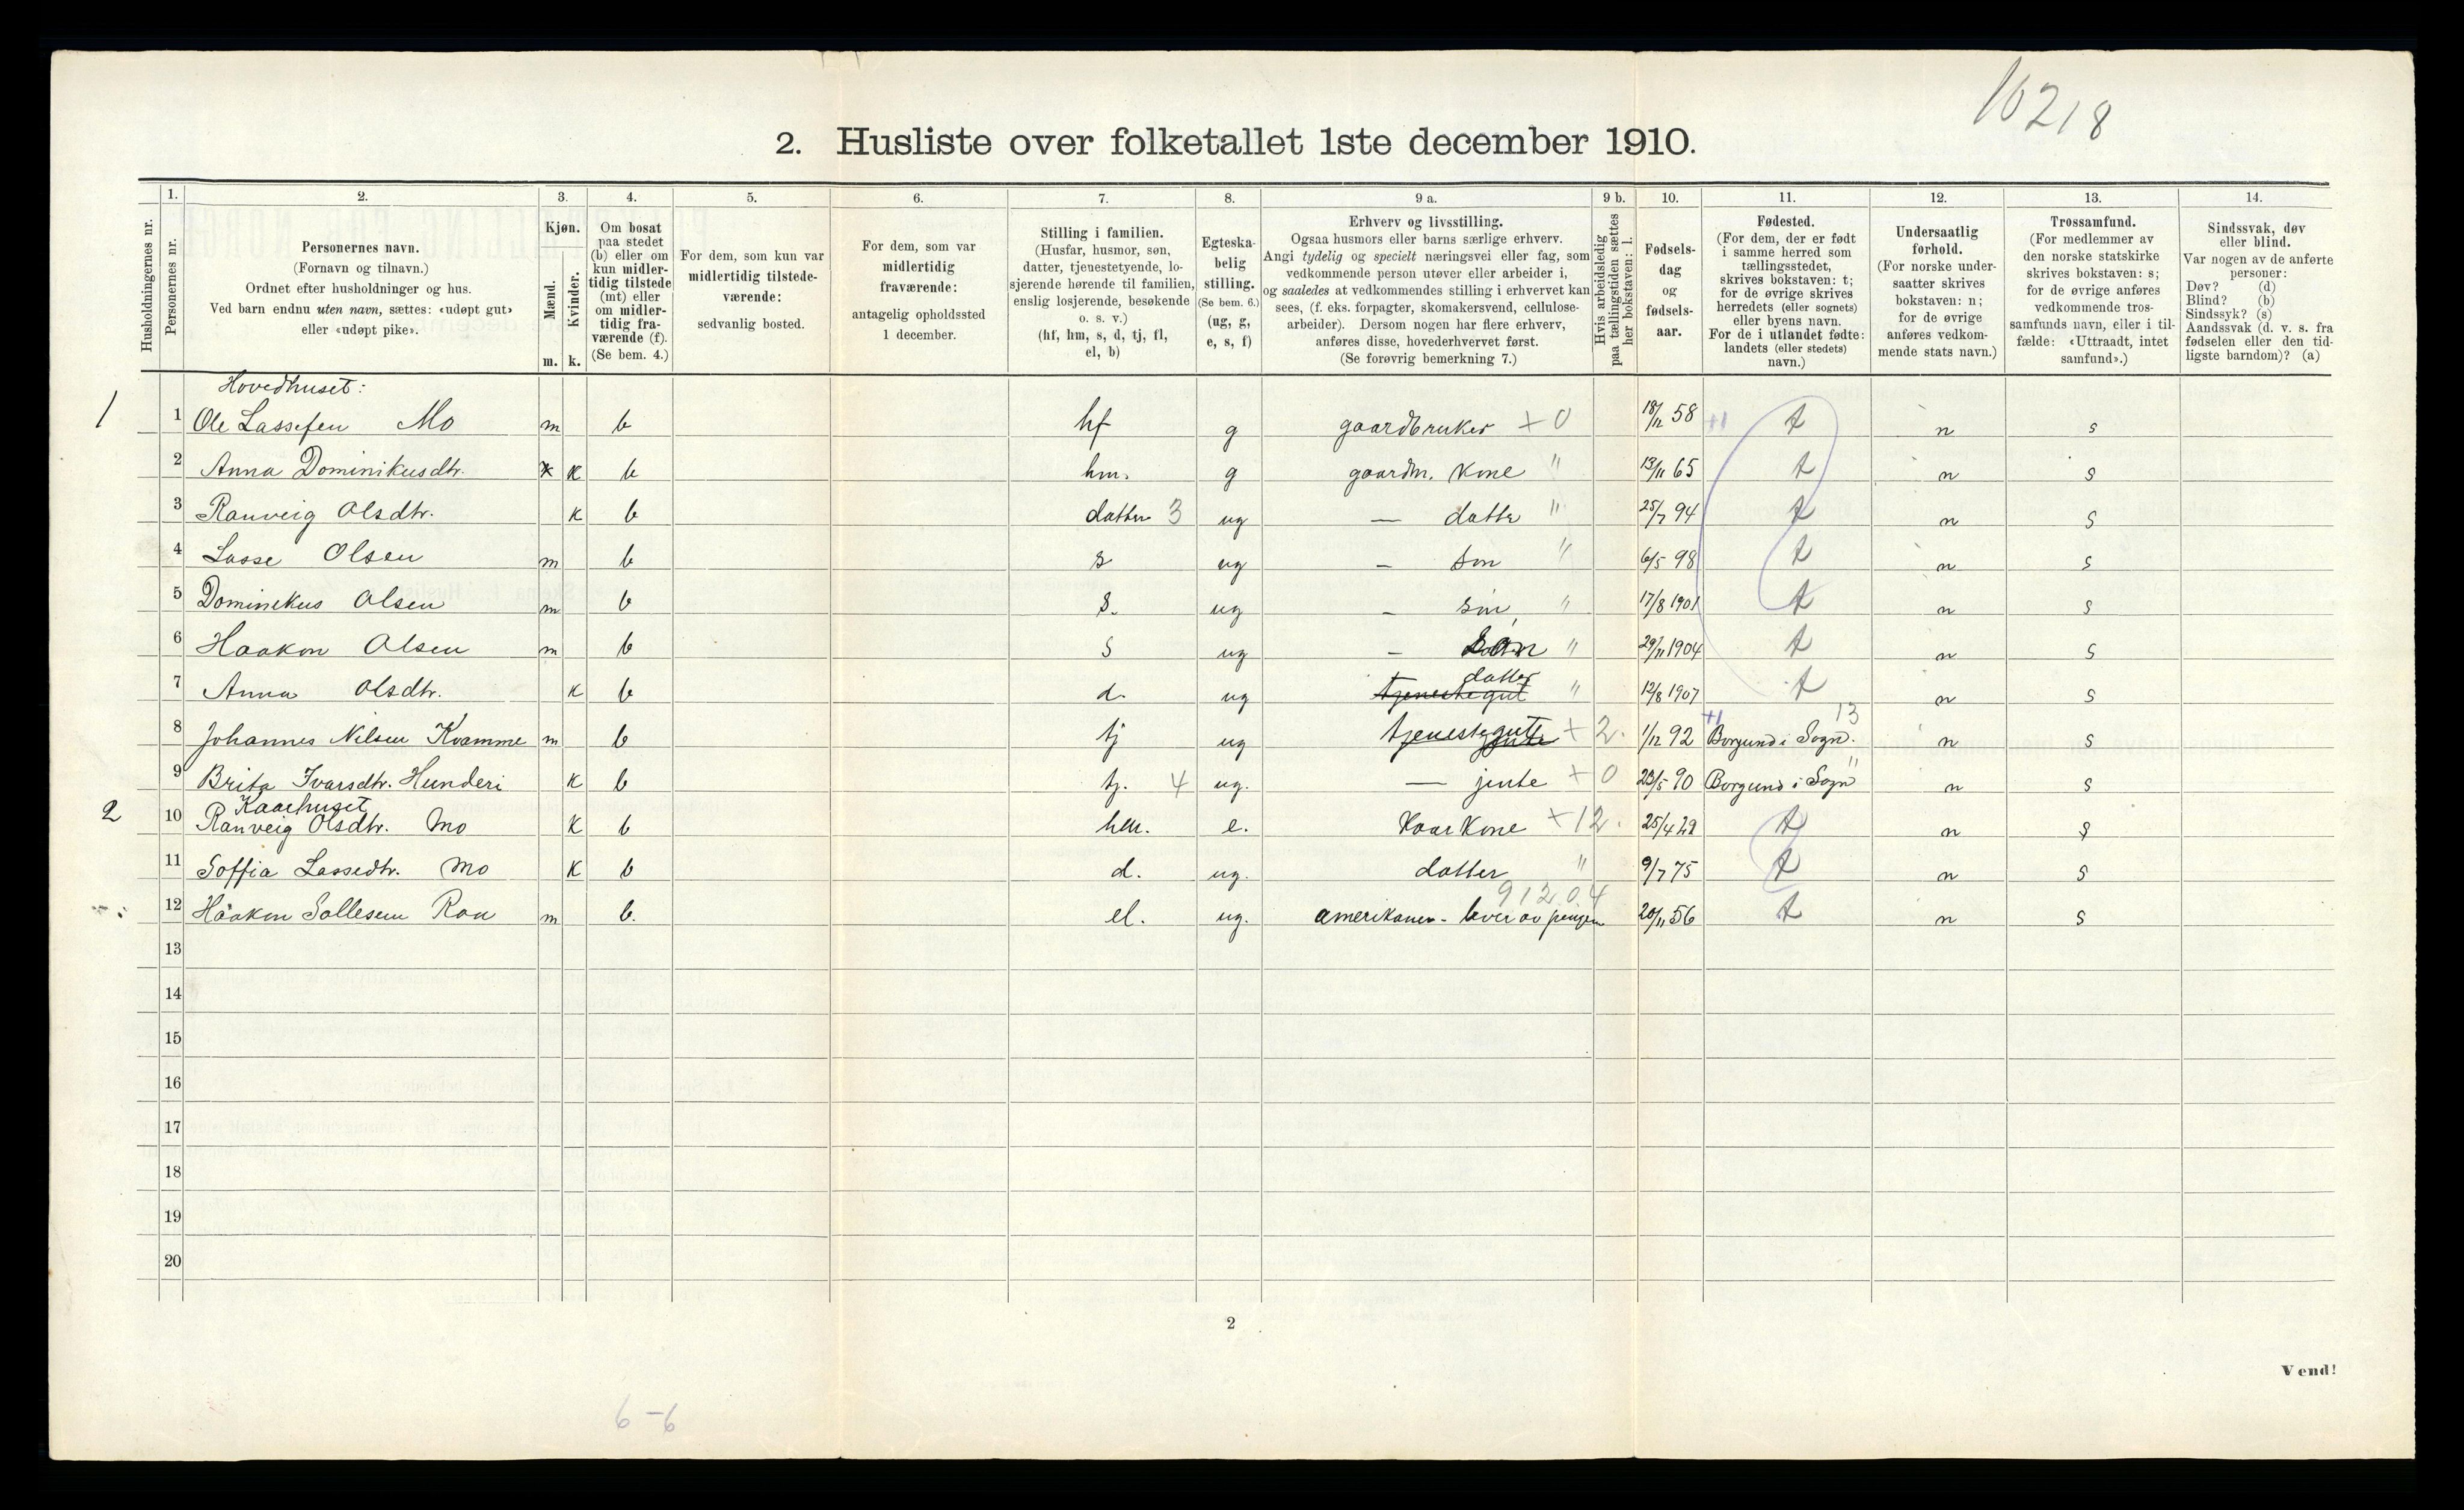 16218
2. Husliste over folketallet 1ste december 1910.
Husholdningernes nr.
1.
Personernes nr.
2.
Personernes navn.
(Fornavn og tilnavn.)
Ordnet efter husholdninger og hus.
Ved barn endnu uten navn, sættes: «udøpt gut»
eller «udøpt pike».
3.
Kjøn.
Mænd.
Kvinder.
m. k.
4.
Om bosat
paa stedet
(b) eller om
kun midler-
tidig tilstede
(mt) eller
om midler-
tidig fra-
værende (f).
(Se bem. 4.)
5.
For dem, som kun var
midlertidig tilstede-
værende:
sedvanlig bosted.
6.
For dem, som var
midlertidig
fraværende:
antagelig opholdssted
1 december.
7.
Stilling i familien.
(Husfar, husmor, søn,
datter, tjenestetyende, lo-
sjerende hørende til familien,
enslig losjerende, besøkende
o. s. v.)
(hf, hm, s, d, tj, fl,
el, b)
8.
Egteska-
belig
stilling.
(Se bem. 6.)
(ug, g,
e, s, f)
9 a.
Erhverv og livsstilling.
Ogsaa husmors eller barns særlige erhverv.
Angi tydelig og specielt næringsvei eller fag, som
vedkommende person utøver eller arbeider i,
og saaledes at vedkommendes stilling i erhvervet kan
sees, (f. eks. forpagter, skomakersvend, cellulose-
arbeider). Dersom nogen har flere erhverv,
anføres disse, hovederhvervet først.
(Se forøvrig bemerkning 7.)
9 b.
Hvis arbeidsledig
paa tællingstiden sættes
her bokstaven: l.
10.
Fødsels-
dag
og
fødsels-
aar.
11.
Fødested.
(For dem, der er født
i samme herred som
tællingsstedet,
skrives bokstaven: t;
for de øvrige skrives
herredets (eller sognets)
eller byens navn.
For de i utlandet fødte:
landets (eller stedets)
navn.)
12.
Undersaatlig
forhold.
(For norske under-
saatter skrives
bokstaven: n;
for de øvrige
anføres vedkom-
mende stats navn.)
13.
Trossamfund.
(For medlemmer av
den norske statskirke
skrives bokstaven: s;
for de øvrige anføres
vedkommende tros-
samfunds navn, eller i til-
fælde: «Uttraadt, intet
samfund».)
14.
Sindssvak, døv
eller blind.
Var nogen av de anførte
personer:
Døv? (d)
Blind? (b)
Sindssyk? (s)
Aandssvak (d. v. s. fra
fødselen eller den tid-
ligste barndom)? (a)
Hovedhuset:
1 1 Ole Lassesen Mo m b hf g gaardbruker + 0 18/12 58 +1 t n s
2 Anna Dominikusdtr. k b hm. g gaardm. kone " 13/11 65 t n s
3 Ranveig Olsdtr. k b datter 3 ug — datter " 25/7 94 t n s
4 Lasse Olsen m b s ug – søn " 6/5 98 t n s
5 Dominikus Olsen m b s. ug – søn " 17/8 1901 t n s
6 Haakon Olsen m b s ug – søn " 29/11 1904 t n s
datter
7 Anna Olsdtr. k b d. ug tjenestegut " 12/8 1907 t n s
13
8 Johannes Nilsen Kvamme m b tj ug tjenestegut + 2. 1/12 92 +1 Borgund i Sogn. n s
9 Brita Ivarsdtr. Hunderi k b tj. 4 ug. — jente + 0 23/5 90 Borgund i Sogn " n s
Kaarhuset
2 10 Ranveig Olsdtr. Mo k b hm. e. Kaarkone + 12. 25/4 29 t n s
11 Soffia Lassedtr. Mo k b d. ug. datter " 9/7 75 t n s
91204
12 Haakon Sollesen Rau m b. el. ug. amerikaner - lever av pengen 20/11 56 t n s
13
14
15
16
17
18
19
20
2
Vend!
6 – 6